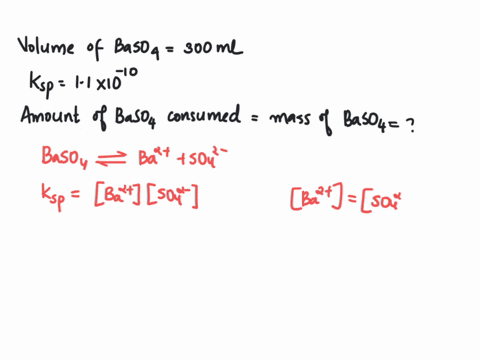 Volume of BaSO4 = 300 ml
Ksp = 1.1 x 10^-10
Amount of BaSO4 consumed = mass of BaSO4 = ?
BaSO4 ⇌ Ba^2+ + SO4^2-
Ksp = [Ba^2+] [SO4^2-] [Ba^2+] = [SO4^2